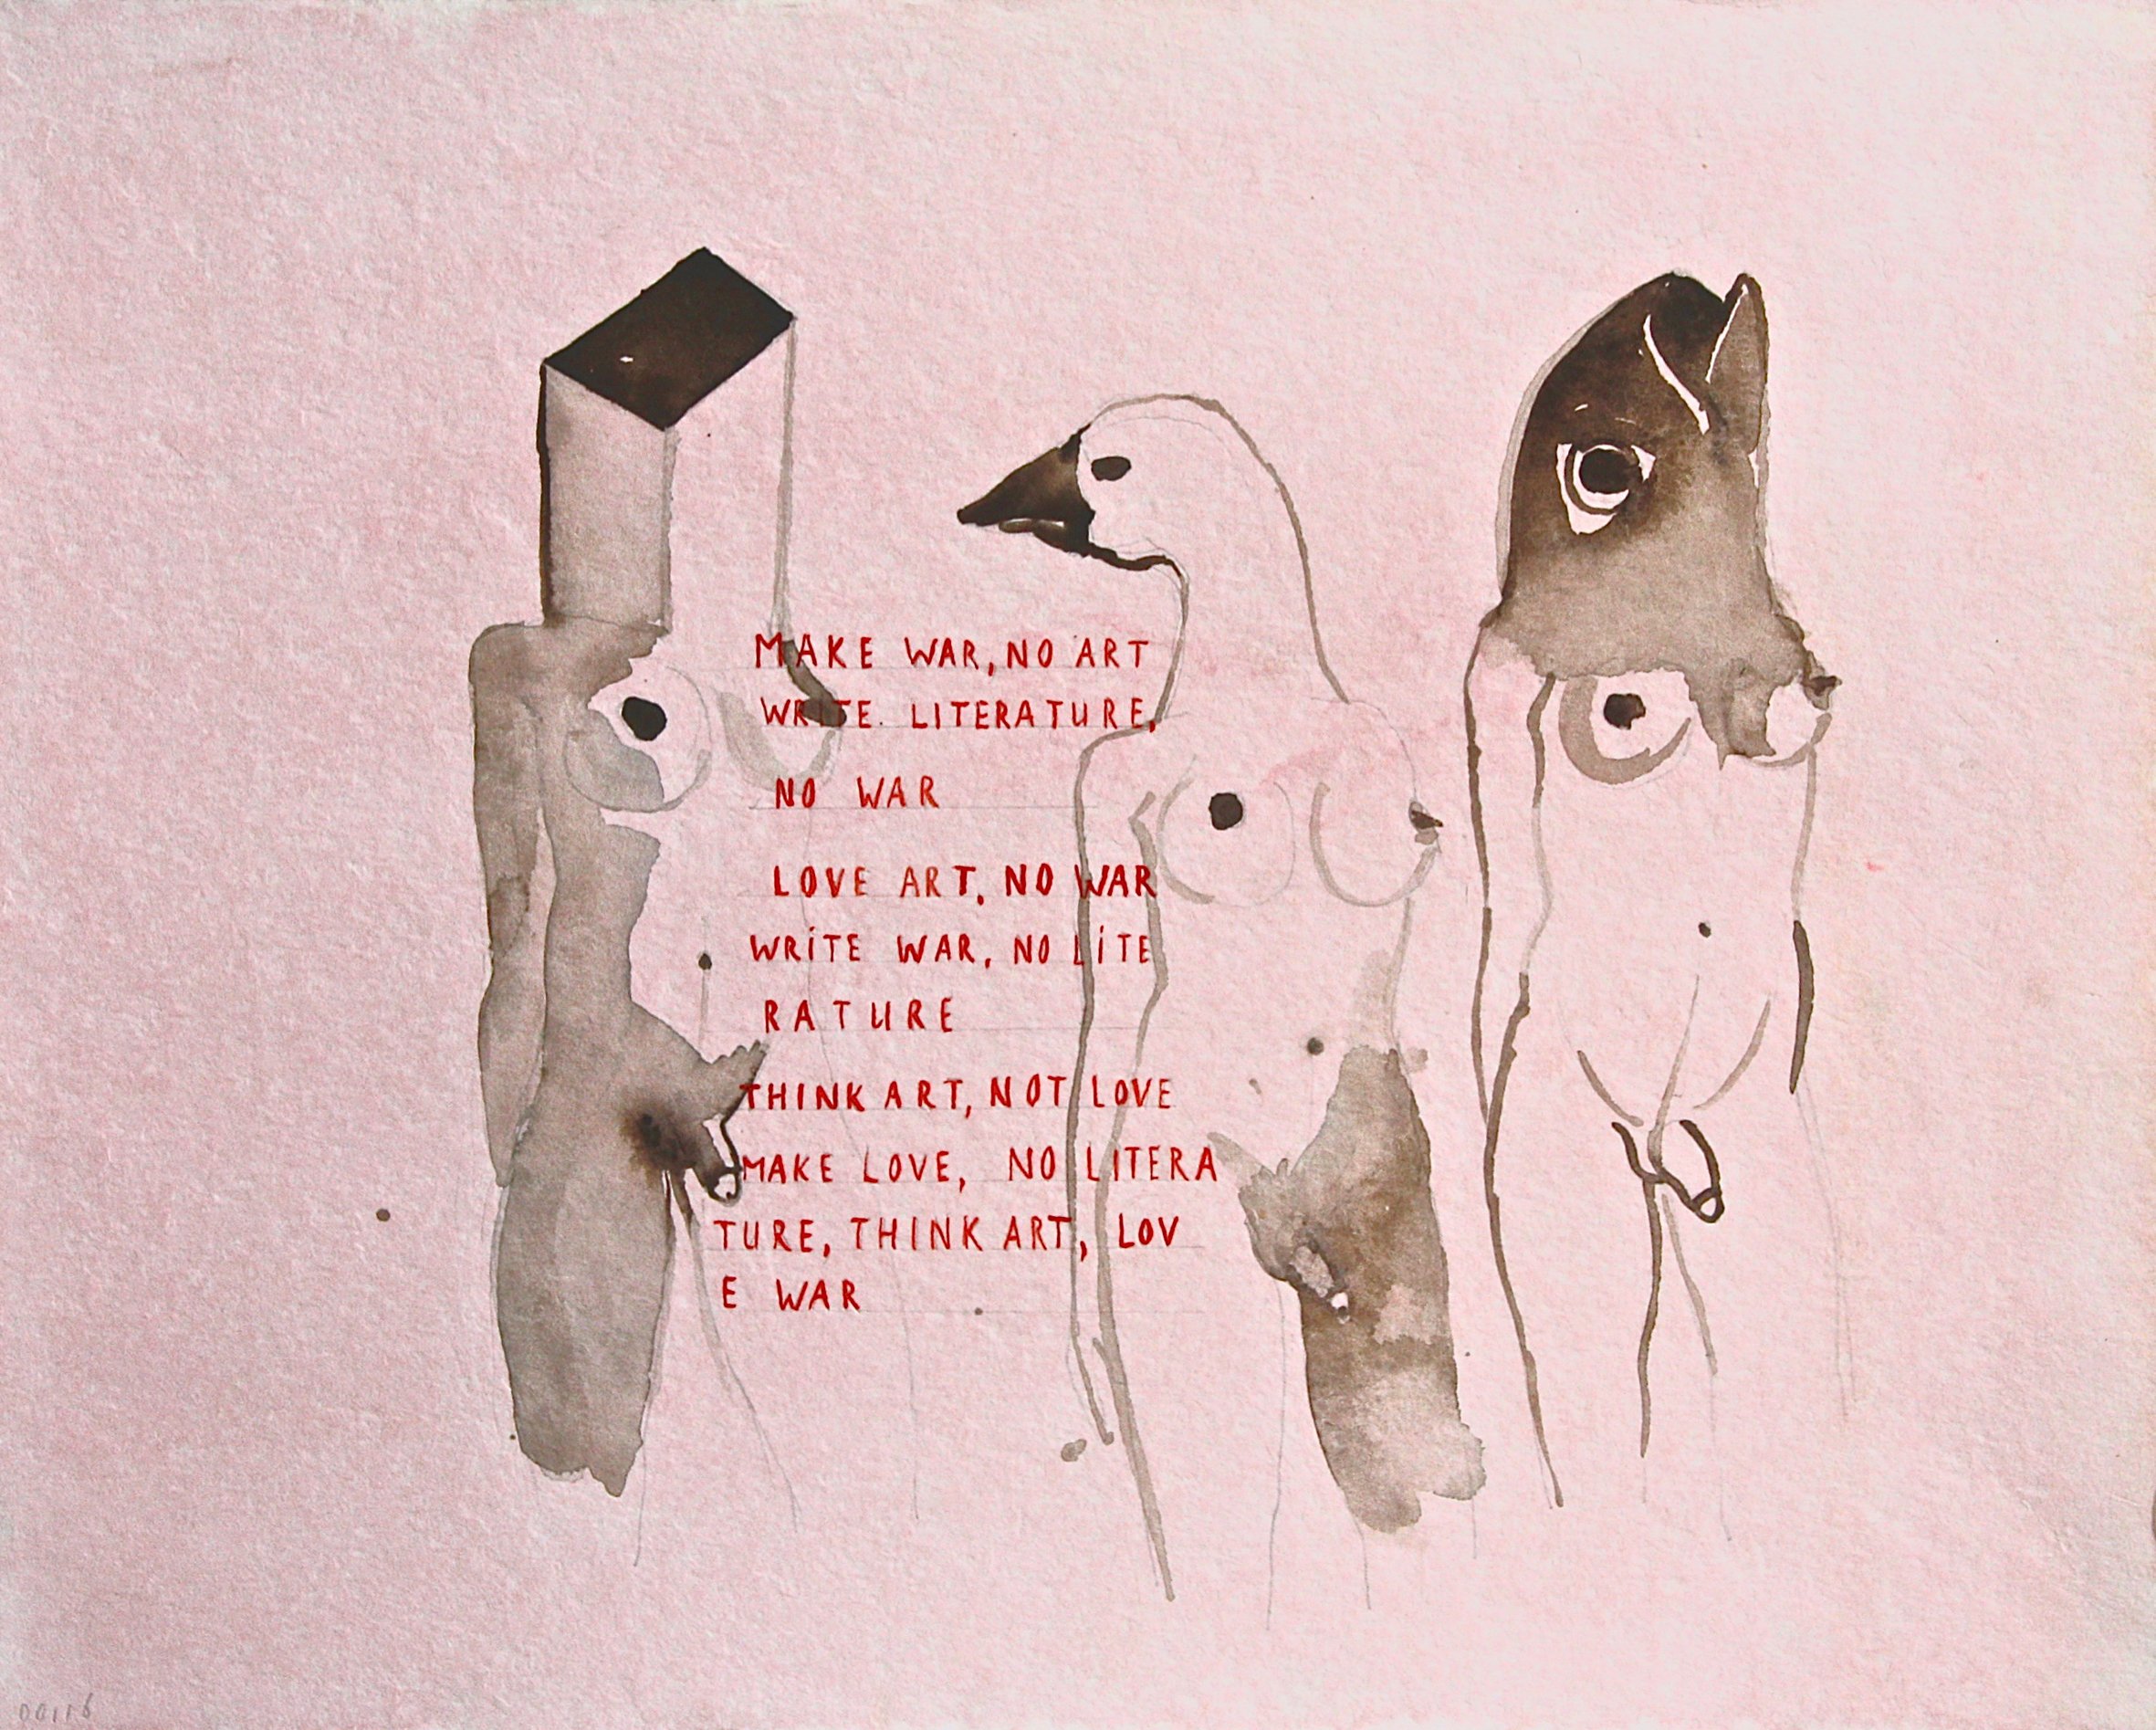 MAKE WAR, NO ART
WRITE. LITERATURE,
NO WAR
LOVE ART, NO WAR
WRiTE WAR, NO LiTE
RATURE
THINK ART, NOT LOVE
MAKE LOVE, NO LITERA
TURE, THINK ART, LOV
E WAR
00116